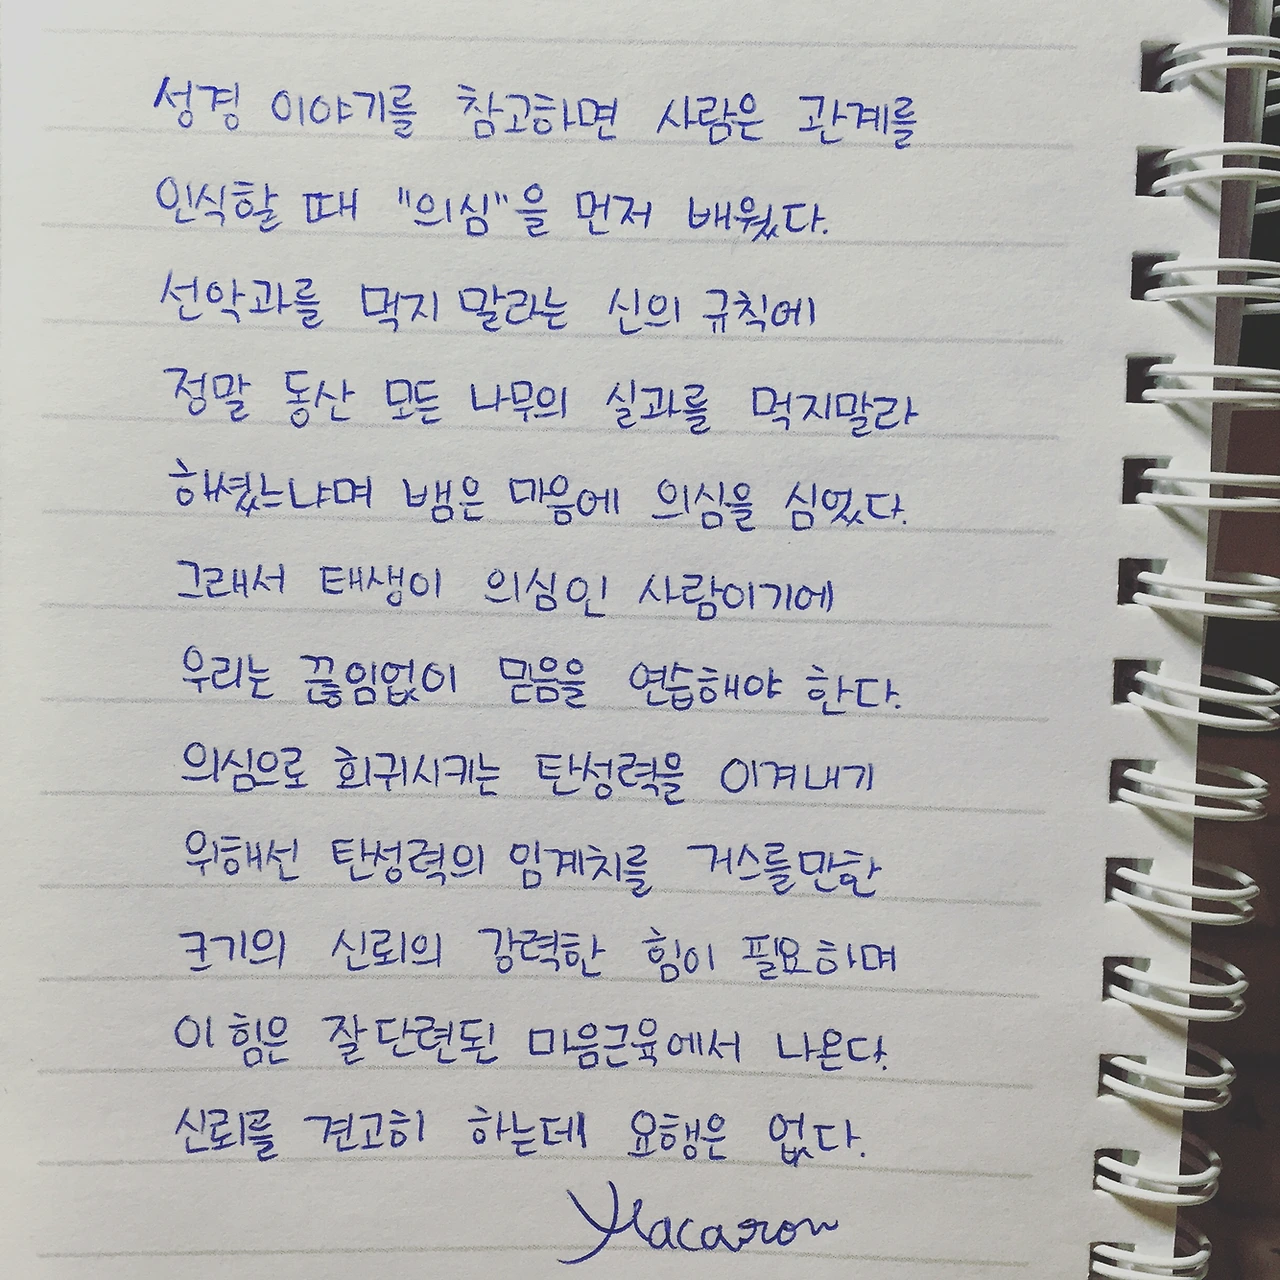 성경 이야기를 참고하면 사람은 관계를
인식할 때 "의심"을 먼저 배웠다.
선악과를 먹지 말라는 신의 규칙에
정말 동산 모든 나무의 실과를 먹지말라
하셨느냐며 뱀은 마음에 의심을 심었다.
그래서 태생이 의심인 사람이기에
우리는 끊임없이 믿음을 연습해야 한다.
의심으로 회귀시키는 탄성력을 이겨내기
위해선 탄성력의 임계치를 거스를만한
크기의 신뢰의 강력한 힘이 필요하며
이 힘은 잘 단련된 마음근육에서 나온다.
신뢰를 견고히 하는데 요행은 없다.
Macaron